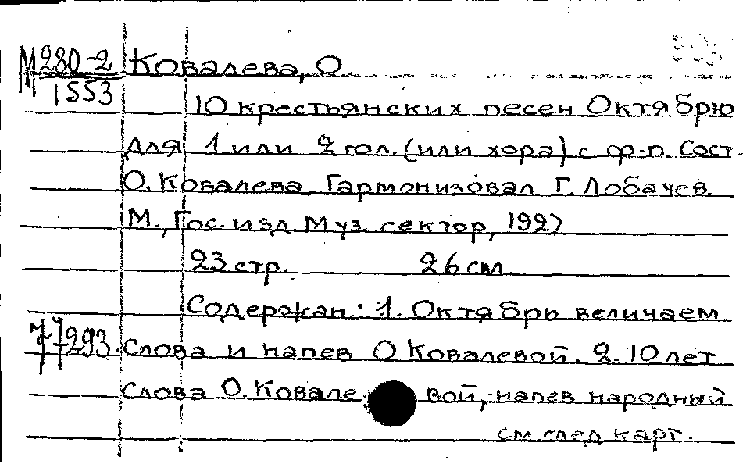 М280-2 Ковалева, О.
1553
10 крестьянских песен Октябрю
для 1 или 2 гол. (или хора) с ф-п. Сост.
О. Ковалева. Гармонизовал Г. Лобачев.
М., Гос. изд. Муз. сектор, 1927
23 стр. 26 см
Содержан: 1. Октябрь величаем
77293 Слова и напев О Ковалевой. 2. 10 лет
Слова О. Ковале вой, напев народный
см след карт.